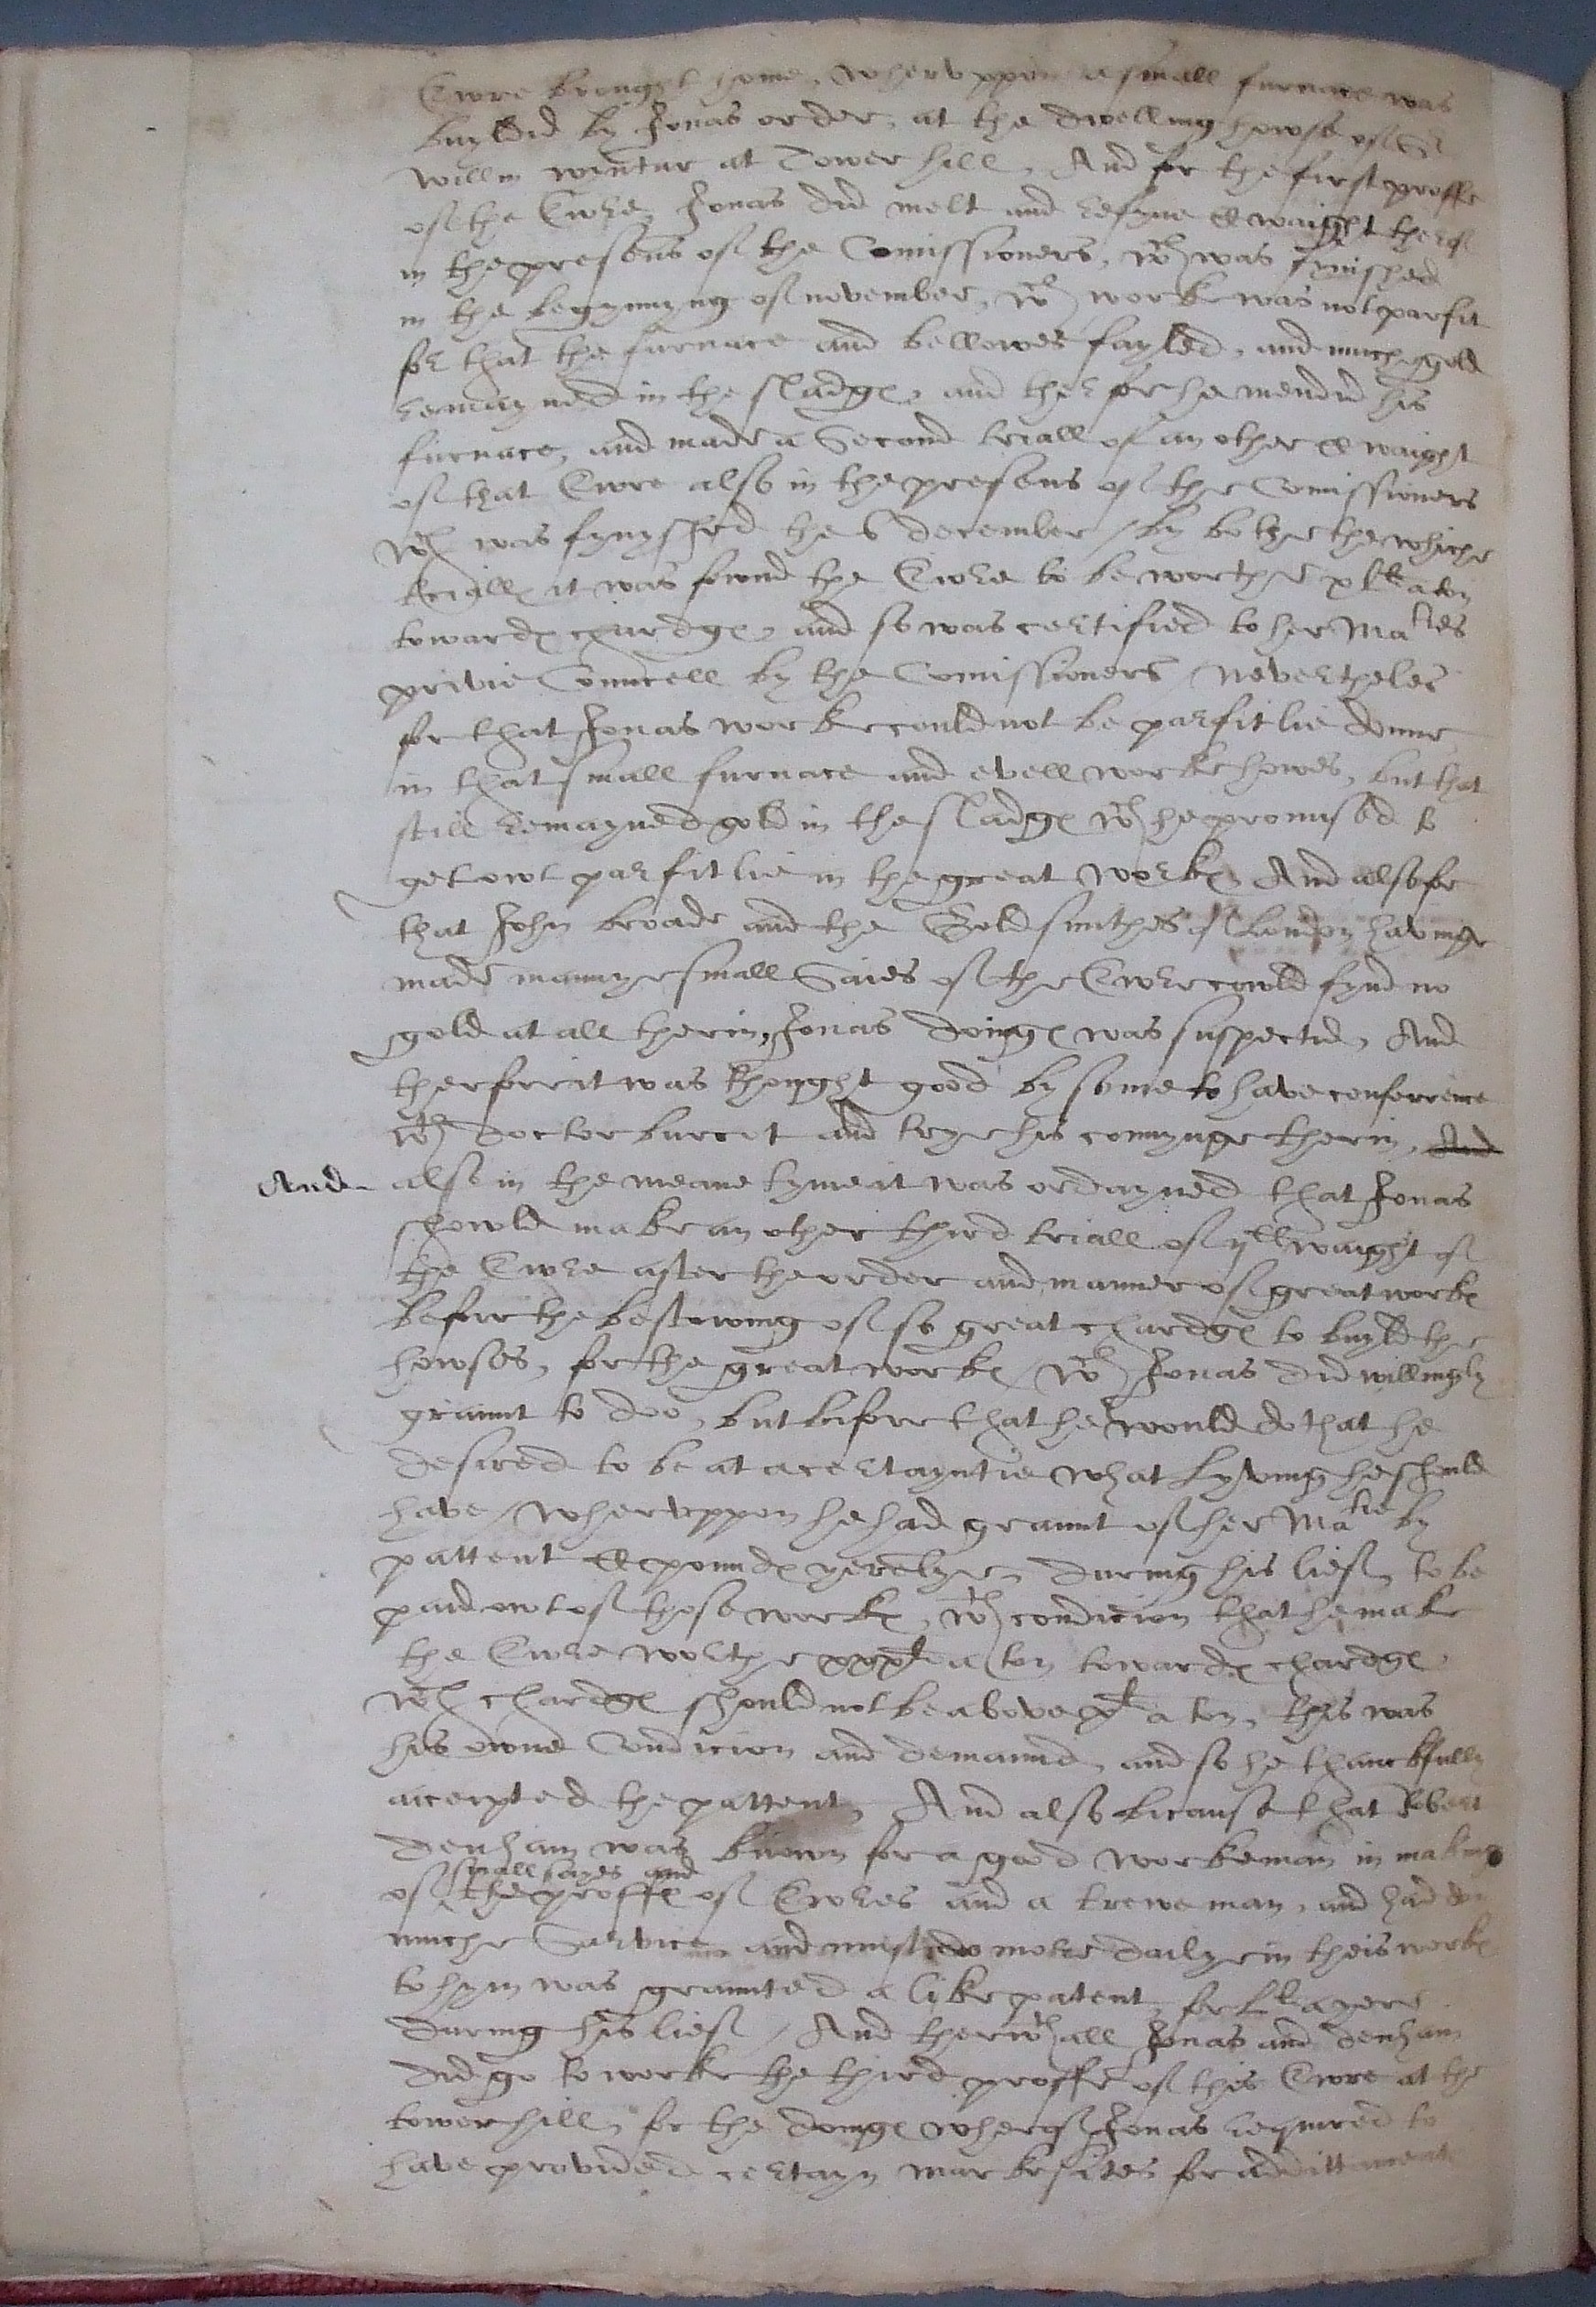 Ewre brought home, Whervppon a small furnace was
buylded by Jonas order, at the dwelling howse of Sr
Willm Wintur at Tower hill, And for the first proffe
of the Ewre, Jonas did melt and refyne CC waight therof
in the presens of the Comissioners, wch was finished
in the begynnyng of november, wch worke was not parfit
for that the furnace and bellowes fayled, and much gold
remayned in the sladge, and therfor he mendid his
furnace, and made a Second triall of an other CC waight
of that Ewre also in the presens of the Comissioners
wch was fynysshed the 6 december / by bothe the whiche
trialls it was fownd the Ewre to be worthe xlli a ton
towardes chardges, and so was certified to her Maties
privie Councell by the Comissioners / neverthelees
for that Jonas worke could not be parfitlie donne
in that small furnace and evell workehowes, but that
still remayned gold in the sladges wch he promised to
get owt parfitlie in the great workes And also for
that John broade and the Goldsmithes of London havinge
made mannye small Saies of the Ewre cowld fynd no
gold at all therin, Jonas doinges was suspectid, And
therfore it was thought good by some to have conferrence
wth doctor burcot and trye his connynge therin, And
And also in the meane tyme it was ordayned that Jonas
showld make an other third triall of ij CC waight of
the Ewre after the order and manner of great workes
before the bestowing of so great chardges to buyld the
howses, for the great workes / wch Jonas did willingly
graunt to doo, but before that he would do that he
desired to be at a certayntie what lyving he should
have / Whervppon he had graunt of her Matie by
pattent CC poundes yerelye, during his lief, to be
paid owt of those workes, wth condicion that he make
the Ewre worthe xxxli a ton towardes chardges
wch chardges should not be above xli a ton, this was
his owne Condicion and demaund, and so he thanckfully
accepted the pattent, And also bicause that Robert
denham was knowen for a good workeman in making
of the small sayes and proffes of Ewres and a trewe man, and had don
muche Service and must do more dailye in theis workes
to hym was graunted a like patent, for Lli a yere
during his lief / And therwthall Jonas and denham
did go to worke the third proffe of this Ewre at the
tower hill, for the doinges wherof Jonas required to
have provided certayn markesites for additament